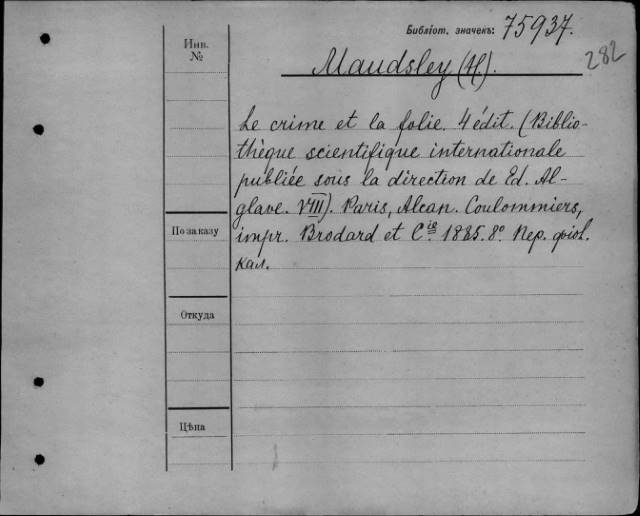 Библіот. значекъ: 75937.
282
Инв. №
Maudsley (H.).
Le crime et la folie. 4 édit. (Biblio-
thèque scientifique internationale
publiée sous la direction de Ed. Al-
glave. VIII). Paris, Alcan. Coulommiers,
По заказу
impr. Brodard et Cie. 1885. 8º. Пер. фіол.
кал.
Откуда
Цѣна